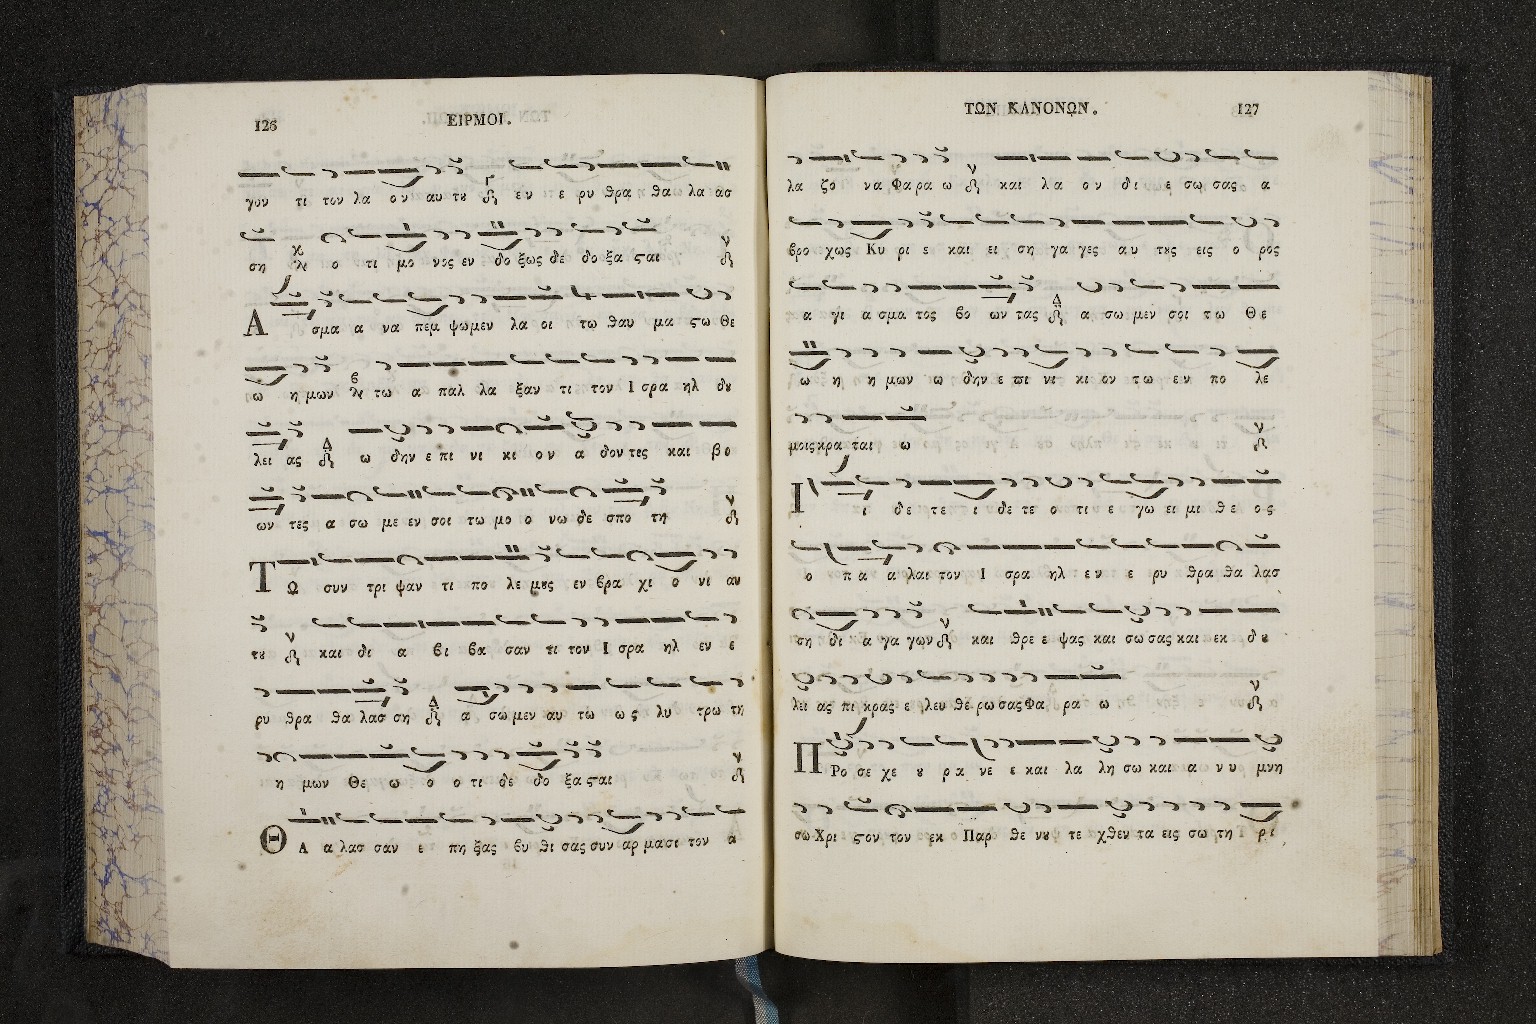 126
ΕΙΡΜΟΙ.
γον τι τον λα ον αυ τȣ εν ε ρυ θρα θα λα ασ
ση ο τι μο νος εν δο ξως δε δο ξα ςαι
Α σμα α να πεμ ψωμεν λα οι τω θαυ μα ςω Θε
ω η μων τω α παλ λα ξαν τι τον Ι σρα ηλ δȣ
λει ας ω δην ε πι νι κι ον α δον τες και βο
ων τες α σω με εν σοι τω μο ο νω δε σπο τη
Τ Ω συν τρι ψαν τι πο λε μȣς εν βρα χι ο νι αυ
τȣ και δι α βι βα σαν τι τον Ι σρα ηλ εν ε
ρυ θρα θα λασ ση α σω μεν αυ τω ω ς λυ τρω τη
η μων Θε ω ο ο τι δε δο ξα ςαι
Θ Α α λασ σαν ε πη ξας βυ θι σας συν αρ μασι τον α
ΤΩΝ ΚΑΝΟΝΩΝ.
127
λα ζο να Φα ρα ω και λα ον δι ε σω σας α
βρο χως Κυ ρι ε και ει ση γα γες αυ τȣς εις ο ρος
α γι α σμα τος βο ων τας α σω μεν σοι τω Θε
ω η η μων ω δην ε πι νι κι ον τω εν πο λε
μοις κρα ται ω
Ι ι δε τε ι δε τε ο τι ε γω ει μι Θε ος
ο πα α λαι τον Ι σρα ηλ εν ε ρυ θρα θα λασ
ση δι α γα γων και θρε ε ψας και σω σας και εκ δȣ
λει ας πι κρας ε λευ θε ρω σας Φα ρα ω
Π Ρο σε χε ȣ ρα νε ε και λα λη σω και α νυ μνη
σω Χρι ςον τον εκ Παρ θε νȣ τε χθεν τα εις σω τη ρι